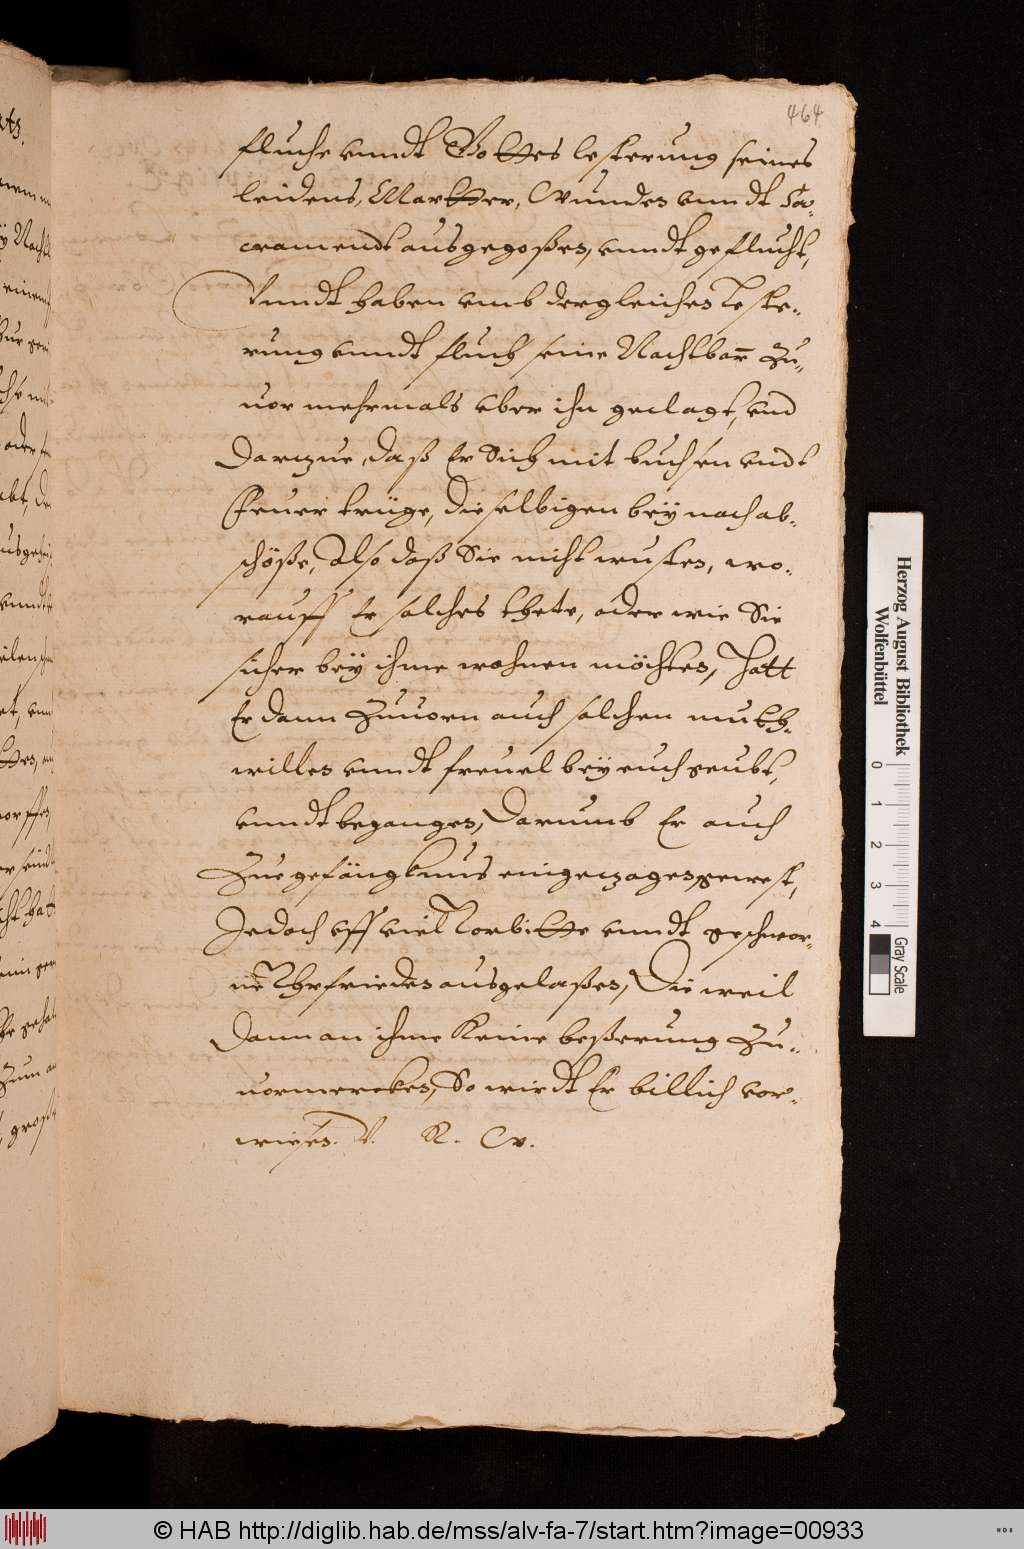 464
fluche vnndt Gottes lesterung seines
leidens, Martter, Wunden vnndt Sa-
cramendt ausgegoßen, vnndt geflucht,
Vnndt haben vmb dergleichen Leste-
rung vnndt fluch seine Nachtbarn Zu-
uor mehrmals vber ihn geclagt, vnd
Darzue, daß Er Sich mit buchsen vndt
Feuer trüge, dieselbigen bey nach ab-
schöße, Also daß Sie nicht wusten, wo-
rauff Er solches thete, oder wie Sie
sicher bey ihme wohnen möchten, Hatt
Er dann Zuuorn auch solchen muth-
willen vnndt freuel bey euch geubt,
vnndt begangen, Darumb Er auch
Zue gefängknus eingezogen gewest,
Jedoch vff viel Vorbitte vnndt geschwor-
ne Vhrfrieden ausgelaßen, Die weil
Dann an ihme Keine beßerung Zu-
uormercken, So wirdt Er billich vor-
wiesen. V. R. W.
Herzog August Bibliothek
Wolfenbüttel
0 1 2 3 4
Gray Scale
© HAB http://diglib.hab.de/mss/alv-fa-7/start.htm?image=00933